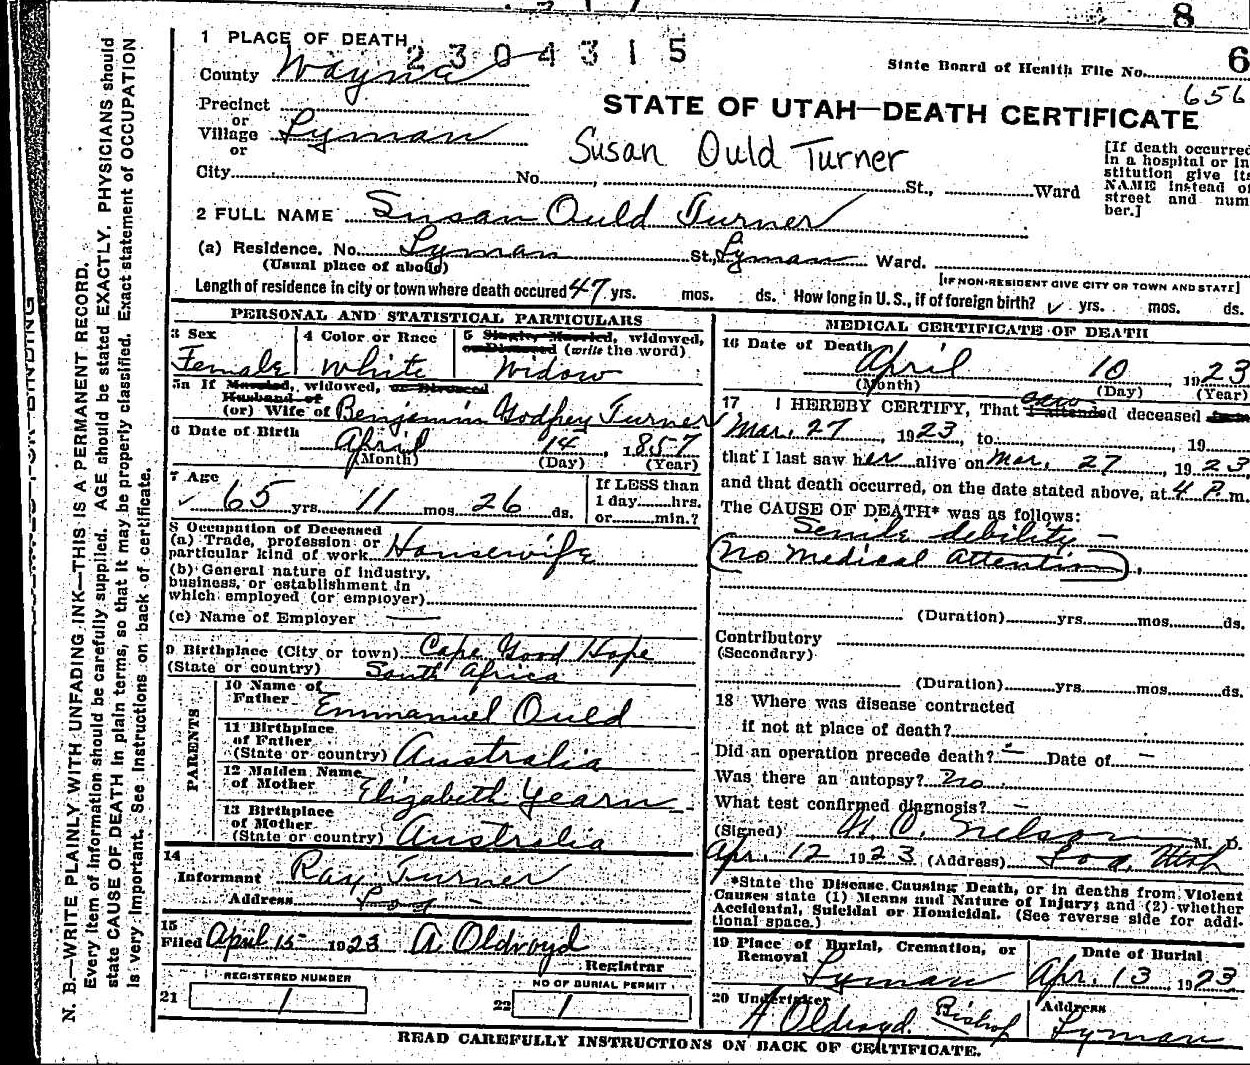 8
1 PLACE OF DEATH 2304315
State Board of Health File No. 6
656
County Wayne
STATE OF UTAH—DEATH CERTIFICATE
Precinct
or
Village Lyman
or
Susan Ould Turner
[If death occurred
in a hospital or in
stitution give its
NAME instead of
street and num
ber.]
City No. , St., Ward
2 FULL NAME Susan Ould Turner
(a) Residence. No. Lyman St., Lyman Ward.
(Usual place of abode)
[IF NON-RESIDENT GIVE CITY OR TOWN AND STATE]
Length of residence in city or town where death occured 47 yrs. mos. ds. How long in U. S., if of foreign birth? yrs. mos. ds.
PERSONAL AND STATISTICAL PARTICULARS
3 Sex
Female
4 Color or Race
White
5 Single, Married, widowed,
or Divorced (write the word)
Widow
5a If Married, widowed, or Divorced
Husband of
(or) Wife of Benjamin Godfrey Turner
6 Date of Birth
April 14, 1857
(Month) (Day) (Year)
7 Age
65 yrs. 11 mos. 26 ds.
If LESS than
1 day hrs.
or min.?
8 Occupation of Deceased
(a) Trade, profession or
particular kind of work Housewife
(b) General nature of Industry,
business, or establishment in
which employed (or employer)
(c) Name of Employer
9 Birthplace (City or town) Cape Good Hope
(State or country) South Africa
PARENTS
10 Name of
Father Emmanuel Ould
11 Birthplace
of Father
(State or country) Australia
12 Maiden Name
of Mother Elizabeth Yearn
13 Birthplace
of Mother
(State or country) Australia
14
Informant Ray Turner
Address Loa
15
Filed April 15 1923 A Oldroyd
Registrar
REGISTERED NUMBER
21 1
NO OF BURIAL PERMIT
22 1
MEDICAL CERTIFICATE OF DEATH
16 Date of Death
April 10, 1923
(Month) (Day) (Year)
saw
17 I HEREBY CERTIFY, That I attended deceased from
Mar. 27, 1923, to 19
that I last saw her alive on Mar. 27, 1923,
and that death occurred, on the date stated above, at 4 P. m.
The CAUSE OF DEATH* was as follows:
Senile debility —
(No medical attention).
(Duration) yrs. mos. ds.
Contributory
(Secondary)
(Duration) yrs. mos. ds.
18 Where was disease contracted
if not at place of death?
Did an operation precede death? — Date of —
Was there an autopsy? No
What test confirmed diagnosis? —
(Signed) M. D.
Apr. 12 1923 (Address) Loa, Utah
*State the Disease Causing Death, or in deaths from Violent
Causes state (1) Means and Nature of Injury; and (2) whether
Accidental, Suicidal or Homicidal. (See reverse side for addi-
tional space.)
19 Place of Burial, Cremation, or
Removal Lyman
Date of Burial
Apr. 13 1923
20 Undertaker
A Oldroyd. Bishop
Address
Lyman
READ CAREFULLY INSTRUCTIONS ON BACK OF CERTIFICATE.
N. B.—WRITE PLAINLY WITH UNFADING INK—THIS IS A PERMANENT RECORD.
Every item of information should be carefully supplied. AGE should be stated EXACTLY. PHYSICIANS should
state CAUSE OF DEATH in plain terms, so that it may be properly classified. Exact statement of OCCUPATION
is very important. See instructions on back of certificate.